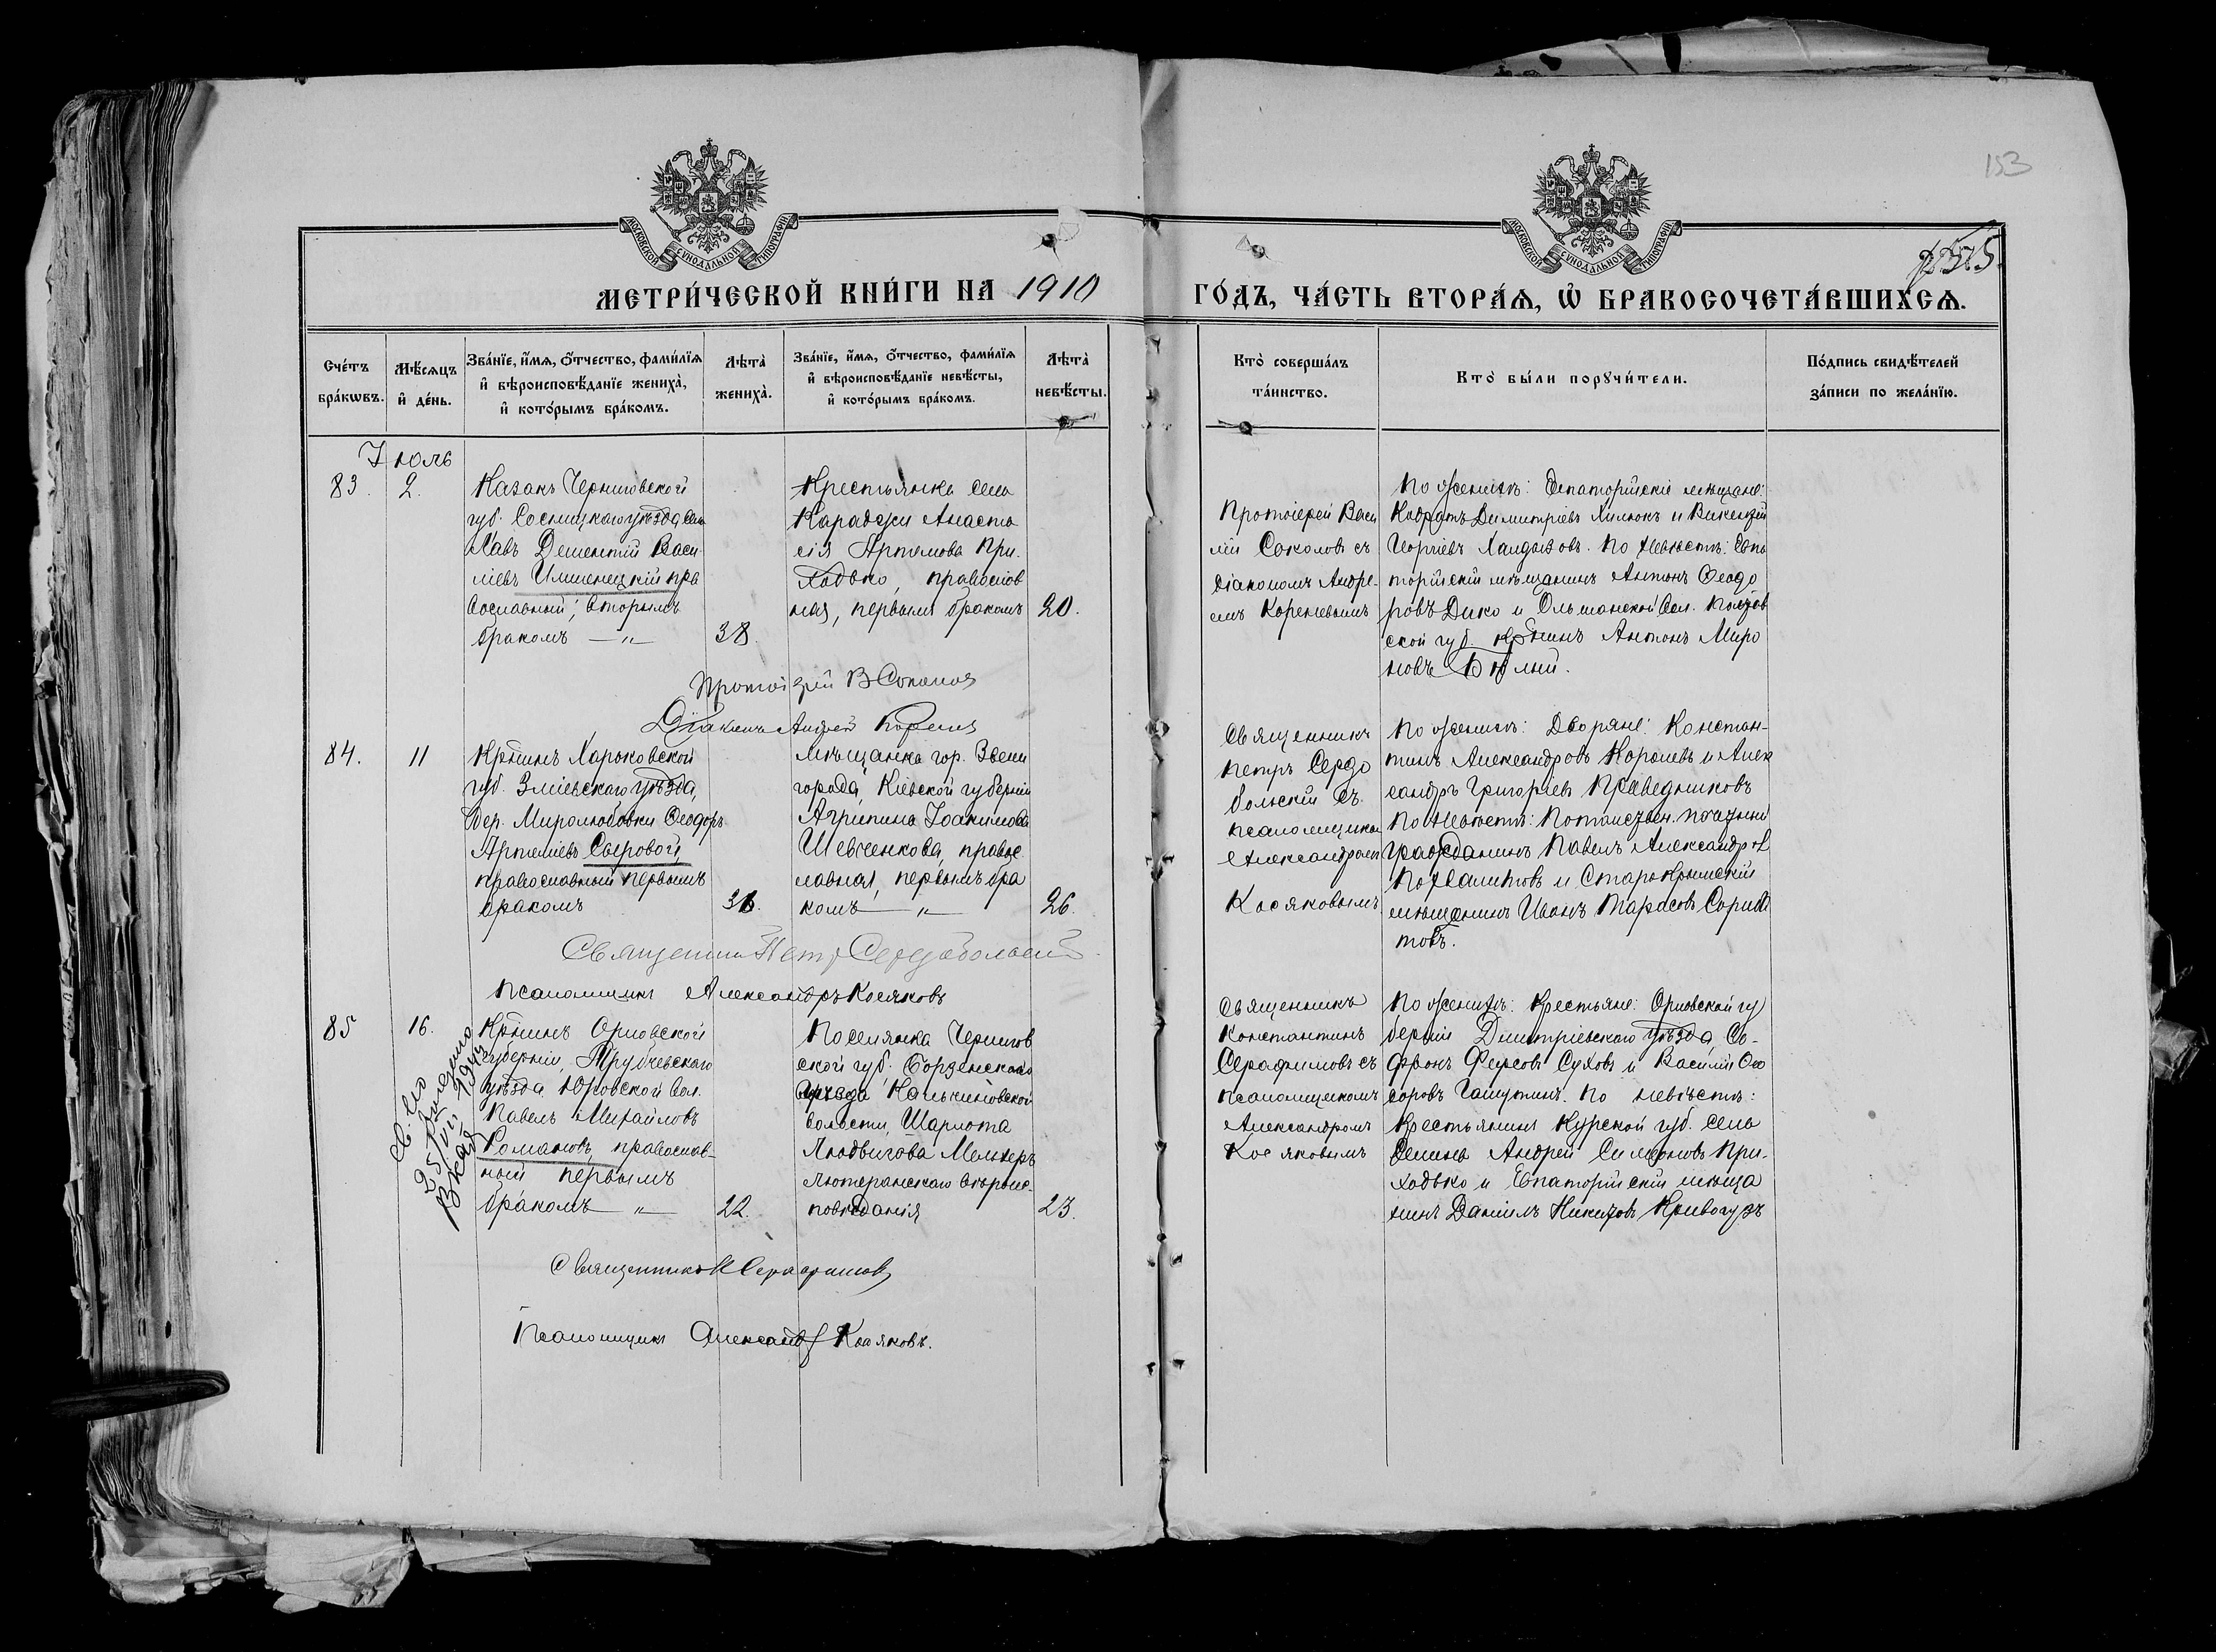 153
575.
МОСКОВСКОЙ СѴНОДАЛЬНОЙ ТИПОГРАФІИ
МОСКОВСКОЙ СѴНОДАЛЬНОЙ ТИПОГРАФІИ
МЕТРИ́ЧЕСКОЙ КНИ́ГИ НА 1910
ГО́ДЪ, ЧА́СТЬ ВТОРА́Ѧ, Ѡ҆ БРАКОСОЧЕТА́ВШИХСѦ.
Сче́тъ бра́кѡвъ.
Мѣ́сѧцъ и҆ де́нь.
Зва́нїе, и҆́мѧ, ѻ҆́тчество, фами́лїѧ
и҆ вѣроисповѣ́данїе жениха̀,
и҆ кото́рымъ бра́комъ.
Лѣта̀ жениха̀.
Зва́нїе, и҆́мѧ, ѻ҆́тчество, фами́лїѧ
и҆ вѣроисповѣ́данїе невѣ́сты,
и҆ кото́рымъ бра́комъ.
Лѣта̀ невѣ́сты.
Кто̀ соверша́лъ
та́инство.
Кто̀ бы́ли порꙋчи́тели.
По́дпись свидѣ́телей
за́писи по жела́нїю.
Іюль
83.
2.
Казакъ Черниговской
губ. Сосницкаго уѣзда
Василіевъ Ишменецкій пра
вославный; вторымъ
бракомъ — „ —
38.
Крестьянка села
Караджи Анаста
сія Артемова При-
ходько, православ
ная, первымъ бракомъ
20.
Протоіерей Васи
лій Соколовъ съ
діакономъ Андре-
емъ Корелевымъ
По женихѣ: Евпаторійскіе мѣщане:
Кодратъ Димитріевъ Хилюкъ и Викентій
Георгіевъ. По невѣстѣ: Евпа
торійскій мѣщанинъ Антонъ Ѳеодо
ровъ Дико и Ольшанской вол. Полтав
ской губ. кр͠нинъ Антонъ Миро
новъ Бѣлый.
Протоіерей В Соколовъ
Діаконъ Андрей Корелевъ
84.
11
Кр͠нинъ Харьковской
губ. Зміевскаго уѣзда,
дер. Миролюбовки Ѳеодоръ
Артеміевъ Сыровой,
православный первымъ
бракомъ
Мѣщанка гор. Звени
города, Кіевской губерніи
Агрипина Іоакимова
Шевченкова, правос
лавная, первымъ бра
комъ — „ —
26.
Священникъ
Петръ Сердо
больскій съ
псаломщикомъ
Александромъ
Косяковымъ
По женихѣ: Дворяне: Констан-
тинъ Александровъ Королевъ и Алек
сандръ Григоріевъ Праведниковъ
По невѣстѣ: Потомствен. почетный
гражданинъ Павелъ Александров
и Старокрымскій
мѣщанинъ Иванъ Тарасовъ
товъ.
Священникъ Петръ Сердобольскій
Псаломщикъ Александръ Косяковъ
85
16.
Св. его
25/VI 1944
Кр͠нинъ Орловской
губерніи, Трубчевскаго
уѣзда Юровской вол.
Павелъ Михайловъ
Романовъ, православ-
ный первымъ
бракомъ — „ —
22.
Поселянка Чернигов
ской губ. Борзенскаго
уѣзда Кальчиновской
волости, Шарлота
Людвигова Мельхеръ
лютеранскаго вѣроис-
повѣданія
23.
Священникъ
Константинъ
Серафимовъ съ
псаломщикомъ
Александромъ
Косяковымъ
По женихѣ: Крестьяне: Орловской гу
берніи Дмитріевскаго уѣзда, Со-
фронъ Фирсовъ Суховъ и Василій Ѳео
доровъ Гашутинъ. По невѣстѣ:
Крестьянинъ Курской губ. села
Демина Андрей Симоновъ При-
ходько и Евпаторійскій мѣща
нинъ Даніилъ Никитовъ Кривогузъ
Священникъ К Серафимовъ
Псаломщикъ Александръ Косяковъ.